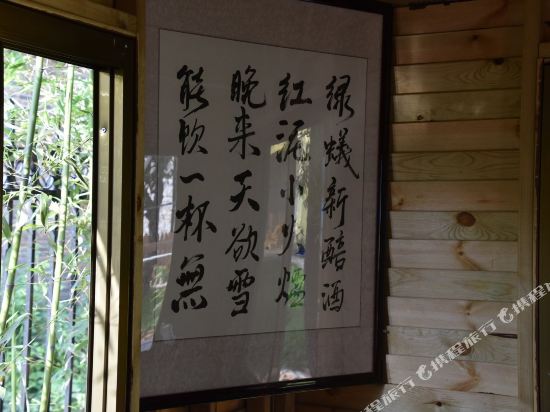 绿蚁新醅酒
红泥小火炉
晚来天欲雪
能饮一杯無
携程旅行
携程旅行